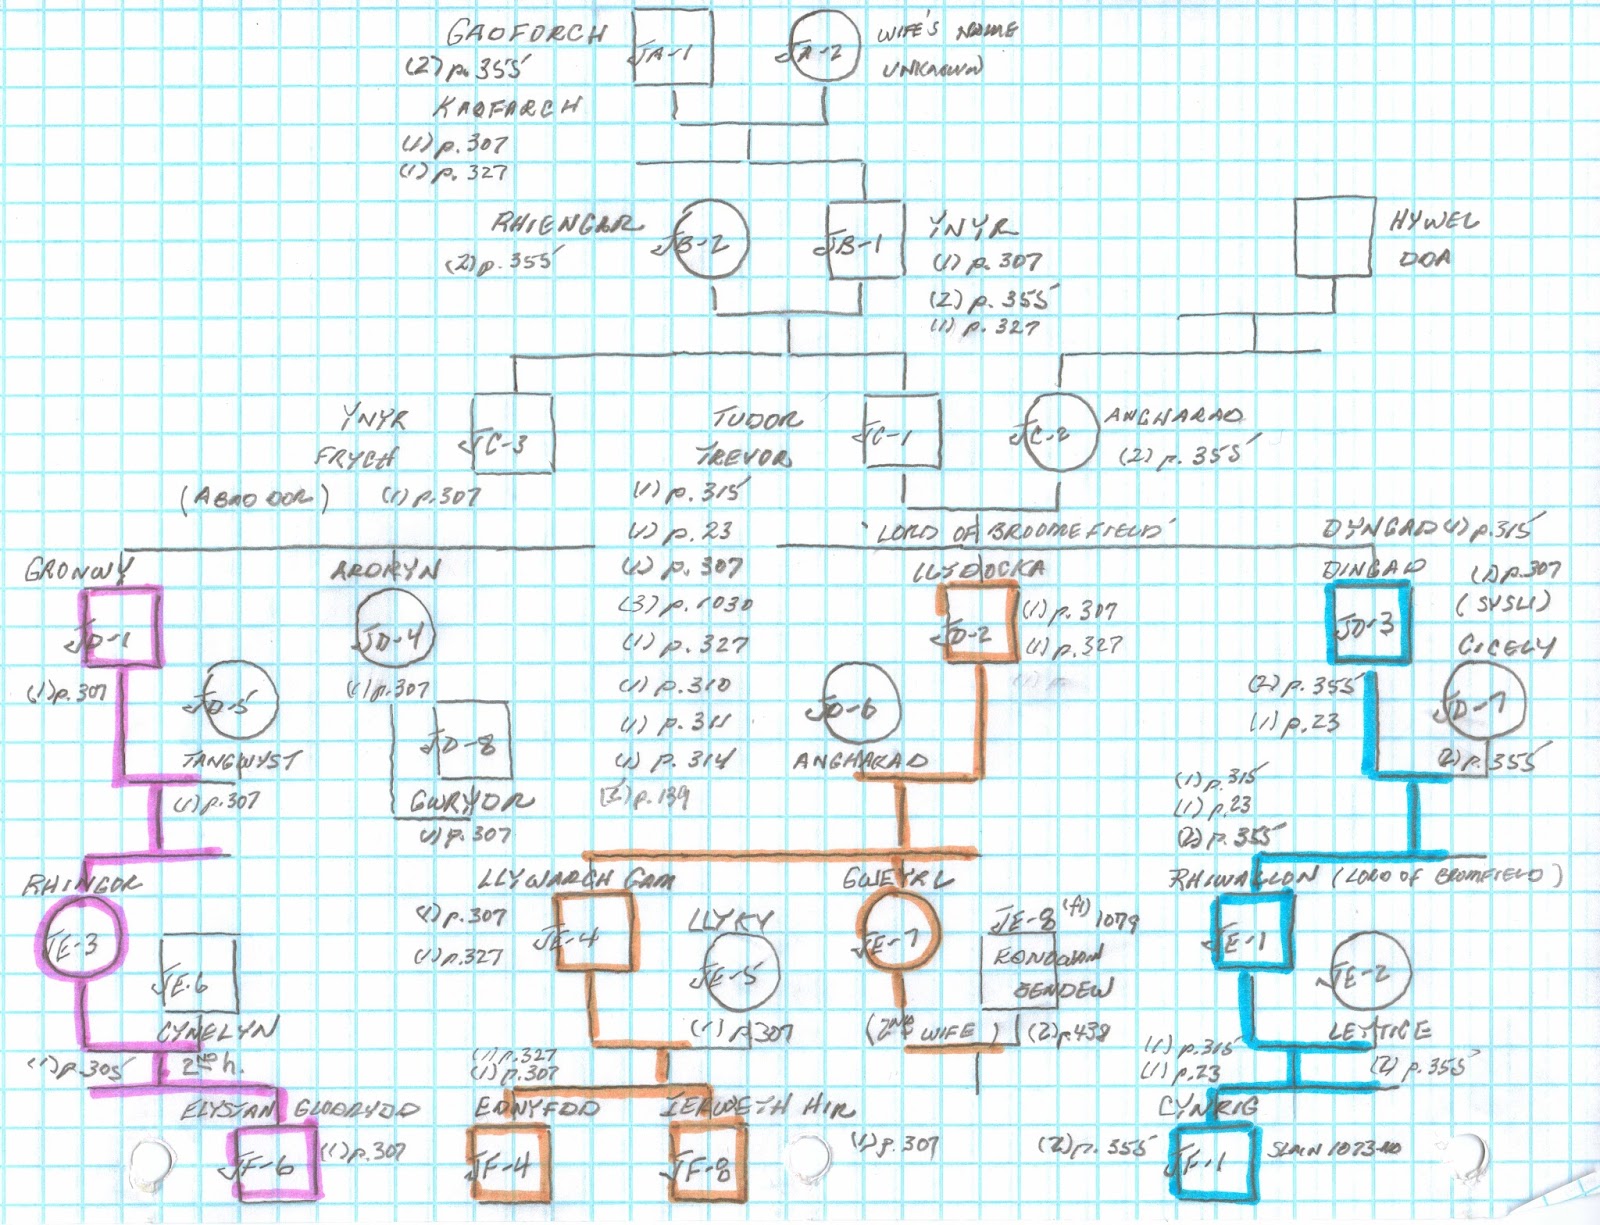 GAOFORCH
JA-1
JA-2
WIFE'S NAME
UNKNOWN
(2) p. 355
KAOFARCH
(1) p. 307
(1) p. 327
RHIENGAR
JB-2
JB-1
YNYR
(2) p. 355
(1) p. 307
(2) p. 355
(1) p. 327
HYWEL
DDA
YNYR
FRYCH
JC-3
TUDOR
TREVOR
JC-1
JC-2
ANGHARAD
(2) p. 355
(1) p. 307
(1) p. 315
(1) p. 23
(1) p. 307
(3) p. 1030
(1) p. 327
(1) p. 310
(1) p. 311
(1) p. 314
p. 139
'LORD OF BROOMEFIELD'
GRONWY
JD-1
(1) p. 307
JD-5
TANGWYST
(1) p. 307
ARDRYN
JD-4
(1) p. 307
JD-8
GWRYDR
(1) p. 307
LLYDOCKA
JD-2
(1) p. 307
(1) p. 327
JD-6
ANGHARAD
DYNGAD (1) p. 315
DINGAD
(1) p. 307
(SYSLI)
CICELY
JD-3
JD-7
(2) p. 355
(1) p. 23
(2) p. 355
(1) p. 315
(1) p. 23
(2) p. 355
RHINGOR
JE-3
JE-6
CYNELYN
(1) p. 305
2ND h.
LLYWARCH GAM
(1) p. 307
(1) p. 327
JE-4
LLYKY
JE-5
(1) p. 307
GWEYRL
JE-7
(2ND WIFE)
JE-8 (fl) 1079
(2) p. 438
RHIWALLON (LORD OF BROMFIELD)
JE-1
JE-2
LEYTICE
(1) p. 315
(1) p. 23
(2) p. 355
ELYSTAN GLODRYDD
JF-6
(1) p. 307
(1) p. 327
(1) p. 307
EDNYFDD
JF-4
IERWETH HIR
JF-8
(1) p. 307
CYNRIG
(2) p. 355
JF-1
SLAIN 1073